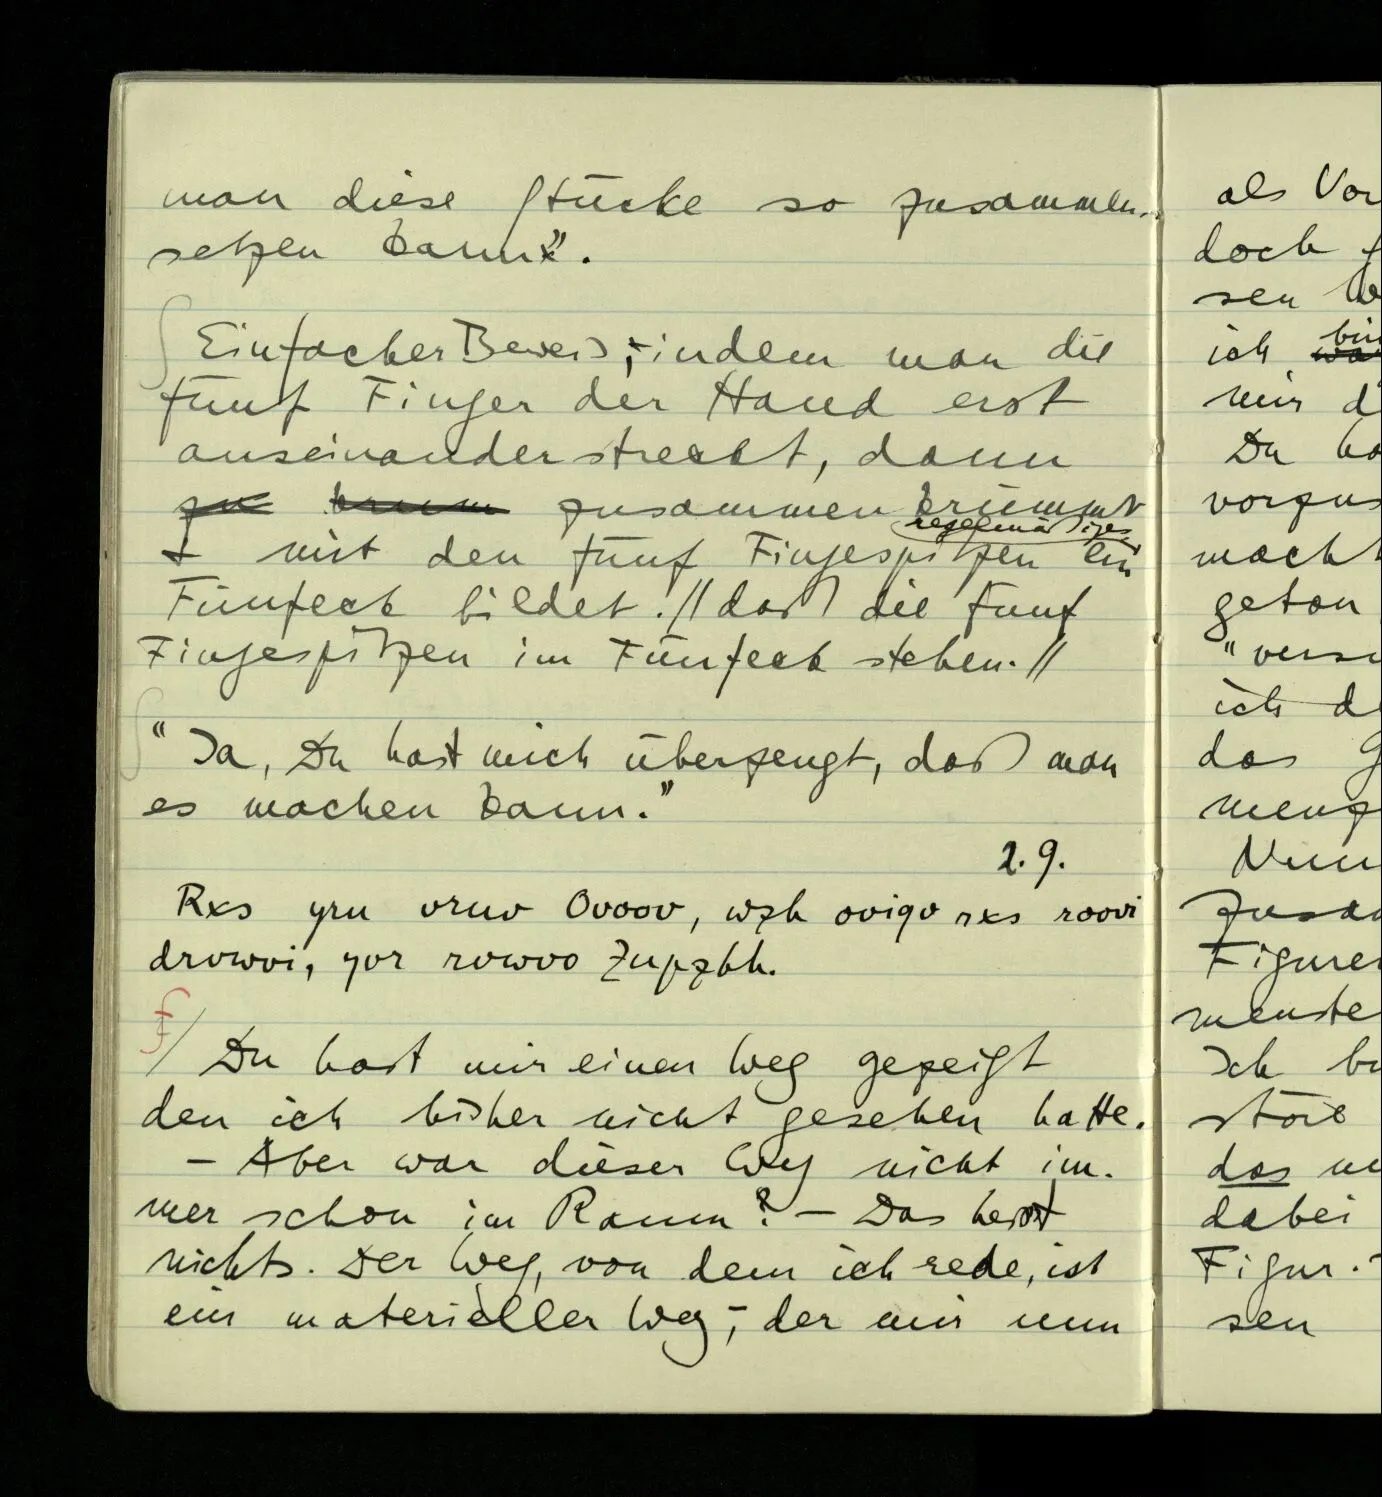 man diese Stücke so zusammen-
setzen kann”.
Einfacher Beweis, indem man die
fünf Finger der Hand erst
auseinanderstreckt, dann
zu krüm zusammenkrümmt
regelmäßiges
& mit den fünf Fingespitzen ein
Fünfeck bildet. // daß die fünf
Fingespitzen im Fünfeck stehen. //
“Ja, Du hast mich überzeugt, daß man
es machen kann.”
2.9.
Rxs yrn vrnv Ovoov, wzh oviqv rxs roovi
drvwvi, yvr rvwvo Znpzhh.
∫ / Du hast mir einen Weg gezeigt
den ich bisher nicht gesehen hatte.
– Aber war dieser Weg nicht im-
mer schon im Raum? – Das heißt
nichts. Der Weg, von dem ich rede, ist
ein materieller Weg, der mir nun
als Vor
doch g
sen
bin
ich wa
mir d
Du ha
vorzus
macht
getan
“vers
ich d
das G
menz
Nun
Zusa
Figure
menste
Ich b
störe
das
dabei
Figur.
sen